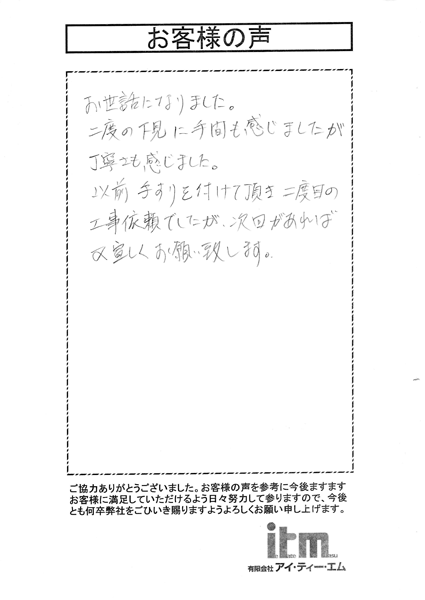 お客様の声
お世話になりました。
二度の下見に手間も感じましたが
丁寧さも感じました。
以前手すりを付けて頂き二度目の
工事依頼でしたが、次回があれば
又宜しくお願い致します。
ご協力ありがとうございました。お客様の声を参考に今後ますます
お客様に満足していただけるよう日々努力して参りますので、今後
とも何卒弊社をごひいき賜りますようよろしくお願い申し上げます。
itm
有限会社アイ・ティー・エム